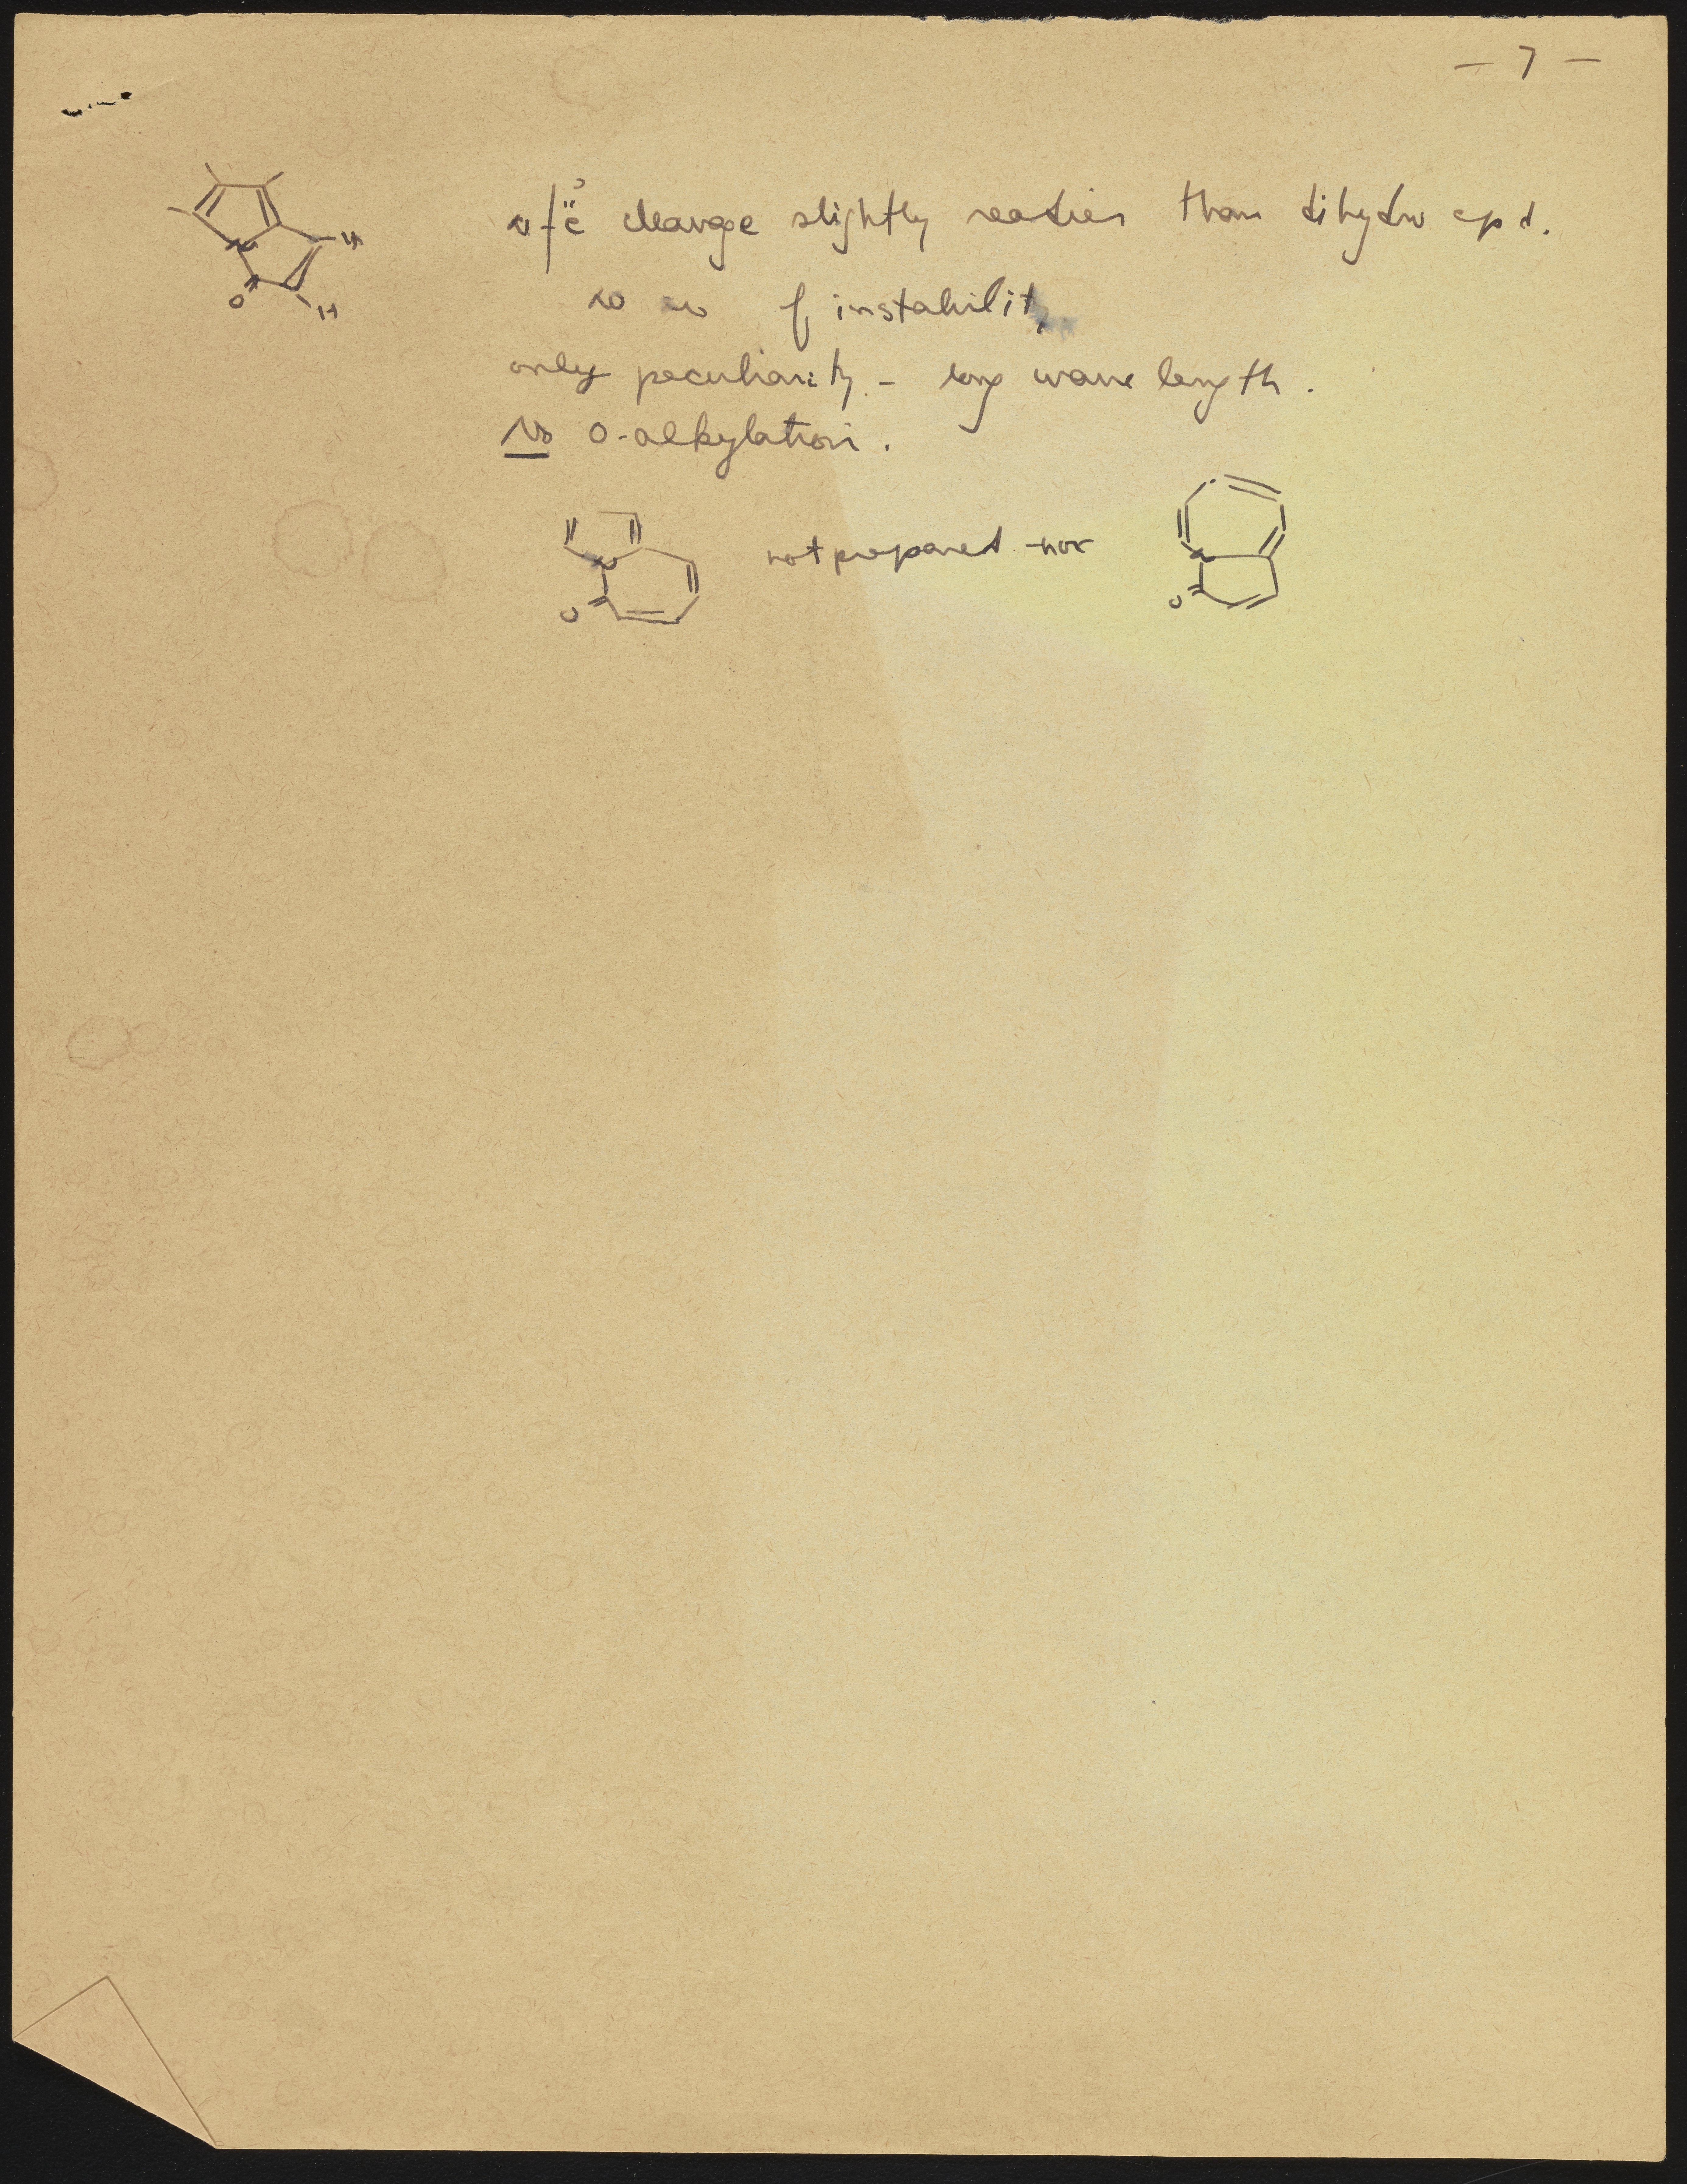 — 7 —
cleavage slightly readier than dihydro cpd.
instability
only peculiarity - long wave length.
No O-alkylation.
N H
O H
N not prepared nor N
O O